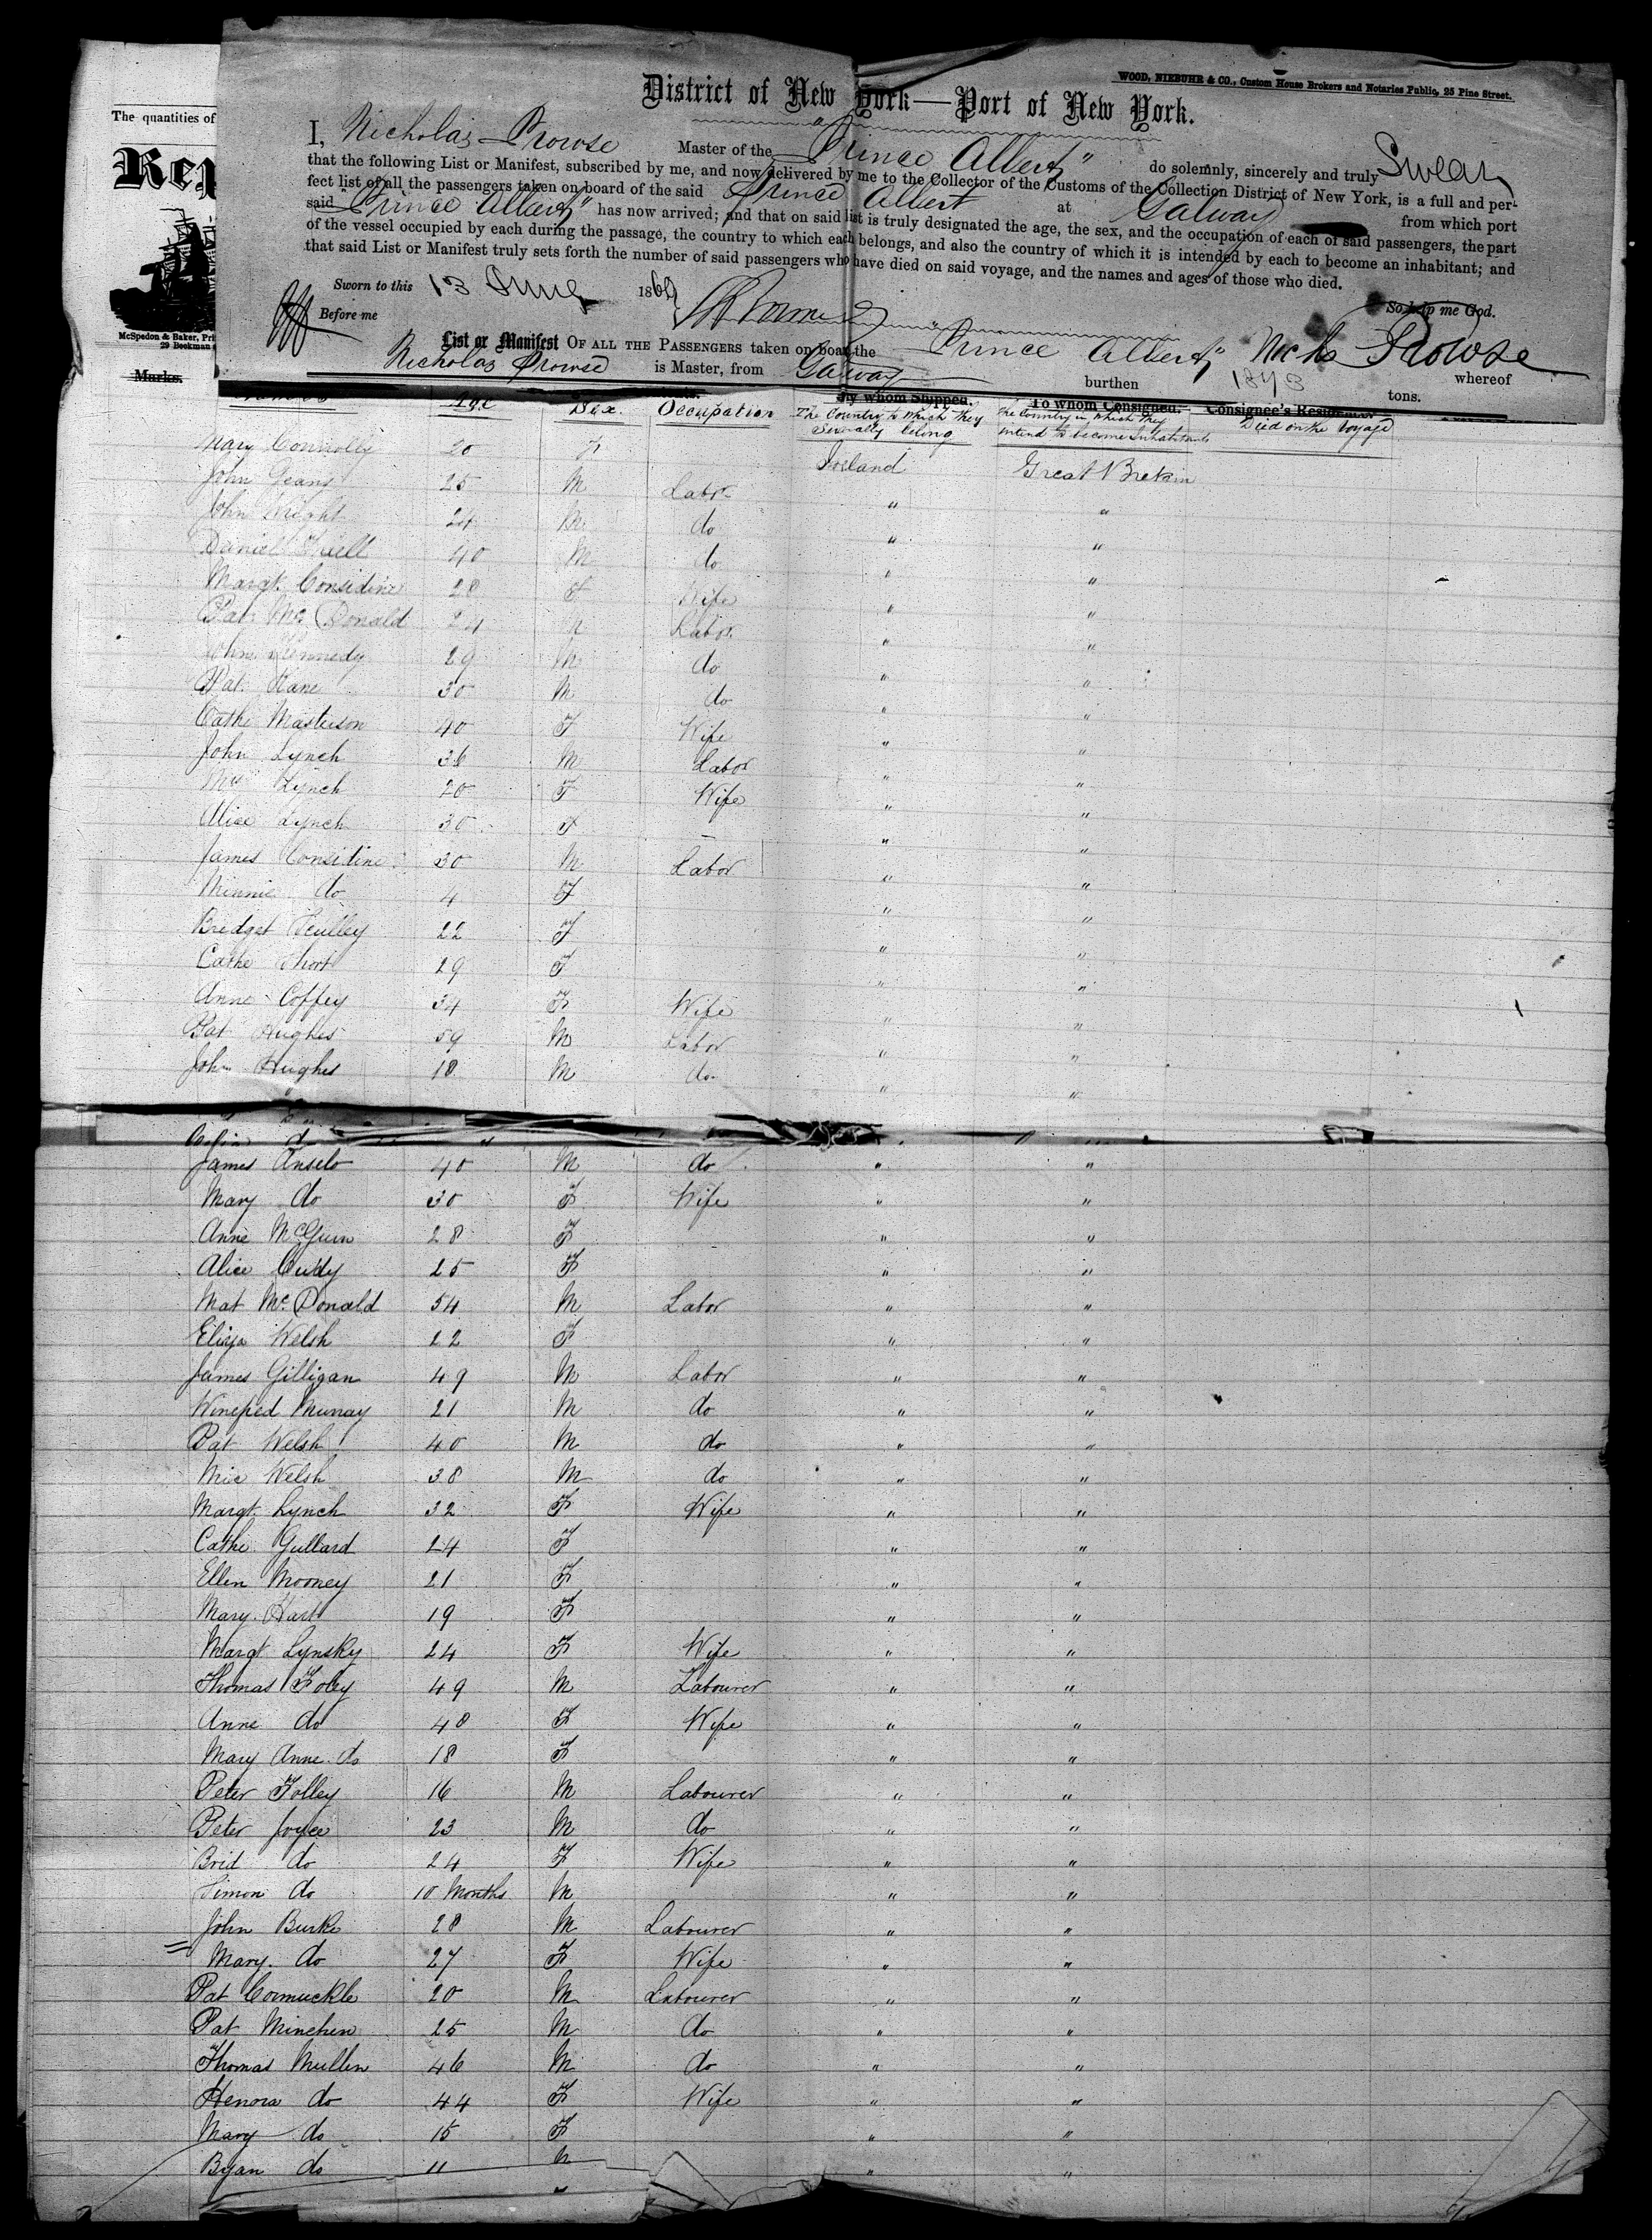 WOOD, NIEBUHR & CO., Custom House Brokers and Notaries Public, 25 Pine Street.
District of New York—Port of New York.
The quantities of
Rep
McSpedon & Baker, Pri
29 Beekman
Marks.
I, Nicholas Prowse Master of the "Prince Albert" do solemnly, sincerely and truly Swear
that the following List or Manifest, subscribed by me, and now delivered by me to the Collector of the Customs of the Collection District of New York, is a full and per-
fect list of all the passengers taken on board of the said Prince Albert at Galway from which port
said "Prince Albert" has now arrived; and that on said list is truly designated the age, the sex, and the occupation of each of said passengers, the part
of the vessel occupied by each during the passage, the country to which each belongs, and also the country of which it is intended by each to become an inhabitant; and
that said List or Manifest truly sets forth the number of said passengers who have died on said voyage, and the names and ages of those who died.
Sworn to this 13 June 1860
So help me God.
Before me
Nichs Prowse
List or Manifest OF ALL THE PASSENGERS taken on board the "Prince Albert" whereof
Nicholas Prowse is Master, from Galway burthen 1843 tons.
By whom Shipped. To whom Consigned. Consignee's Residence
Names Age Sex. Occupation The Country to which they Severally belong The Country in which they intend to become Inhabitants Died on the Voyage
Mary Connolly 20 F Ireland Great Bretain
John Geans 25 M Labor " "
John Wright 24 M do " "
Daniel 40 M do " "
Margt. Considine 28 F Wife " "
Pat Mc Donald 24 M Labor " "
John Kennedy 29 M do " "
Pat. Kane 30 M do " "
Cathe Masterson 40 F Wife " "
John Lynch 36 M Labor " "
Lynch 20 F Wife " "
Alice Lynch 30 F – " "
James Considine 30 M Labor " "
Minnie do 4 F " "
Bridget Sculley 22 F " "
Cathe Short 29 F " "
Anne Coffey 34 F Wife " "
Pat Hughes 59 M Labor " "
John Hughes 18 M do " "
do
James Anselo 40 M do " "
Mary do 30 F Wife " "
Anne McGuin 28 F " "
Alice Cuddy 25 F " "
Mat Mc. Donald 54 M Labor " "
Eliza Welsh 22 F " "
James Gilligan 49 M Labor " "
Winefred Murray 21 M do " "
Pat Welsh 40 M do " "
Mic Welsh 38 M do " "
Margt. Lynch 32 F Wife " "
Cathe. Gullard 24 F " "
Ellen Mooney 21 F " "
Mary. Hart 19 F " "
Margt Lynsky 24 F Wife " "
Thomas Foley 49 M Labourer " "
Anne do 48 F Wife " "
Mary Anne do 18 F " "
Peter Folley 16 M Labourer " "
Peter Joyce 23 M do " "
Brid do 24 F Wife " "
Simon do 10 Months M " "
John Burke 28 M Labourer " "
Mary. do 27 F Wife " "
Pat Cormuckle 20 M Labourer " "
Pat Minchen 25 M do " "
Thomas Mullen 46 M do " "
Henora do 44 F Wife " "
Mary do 15 F " "
Byan do 11 M " "